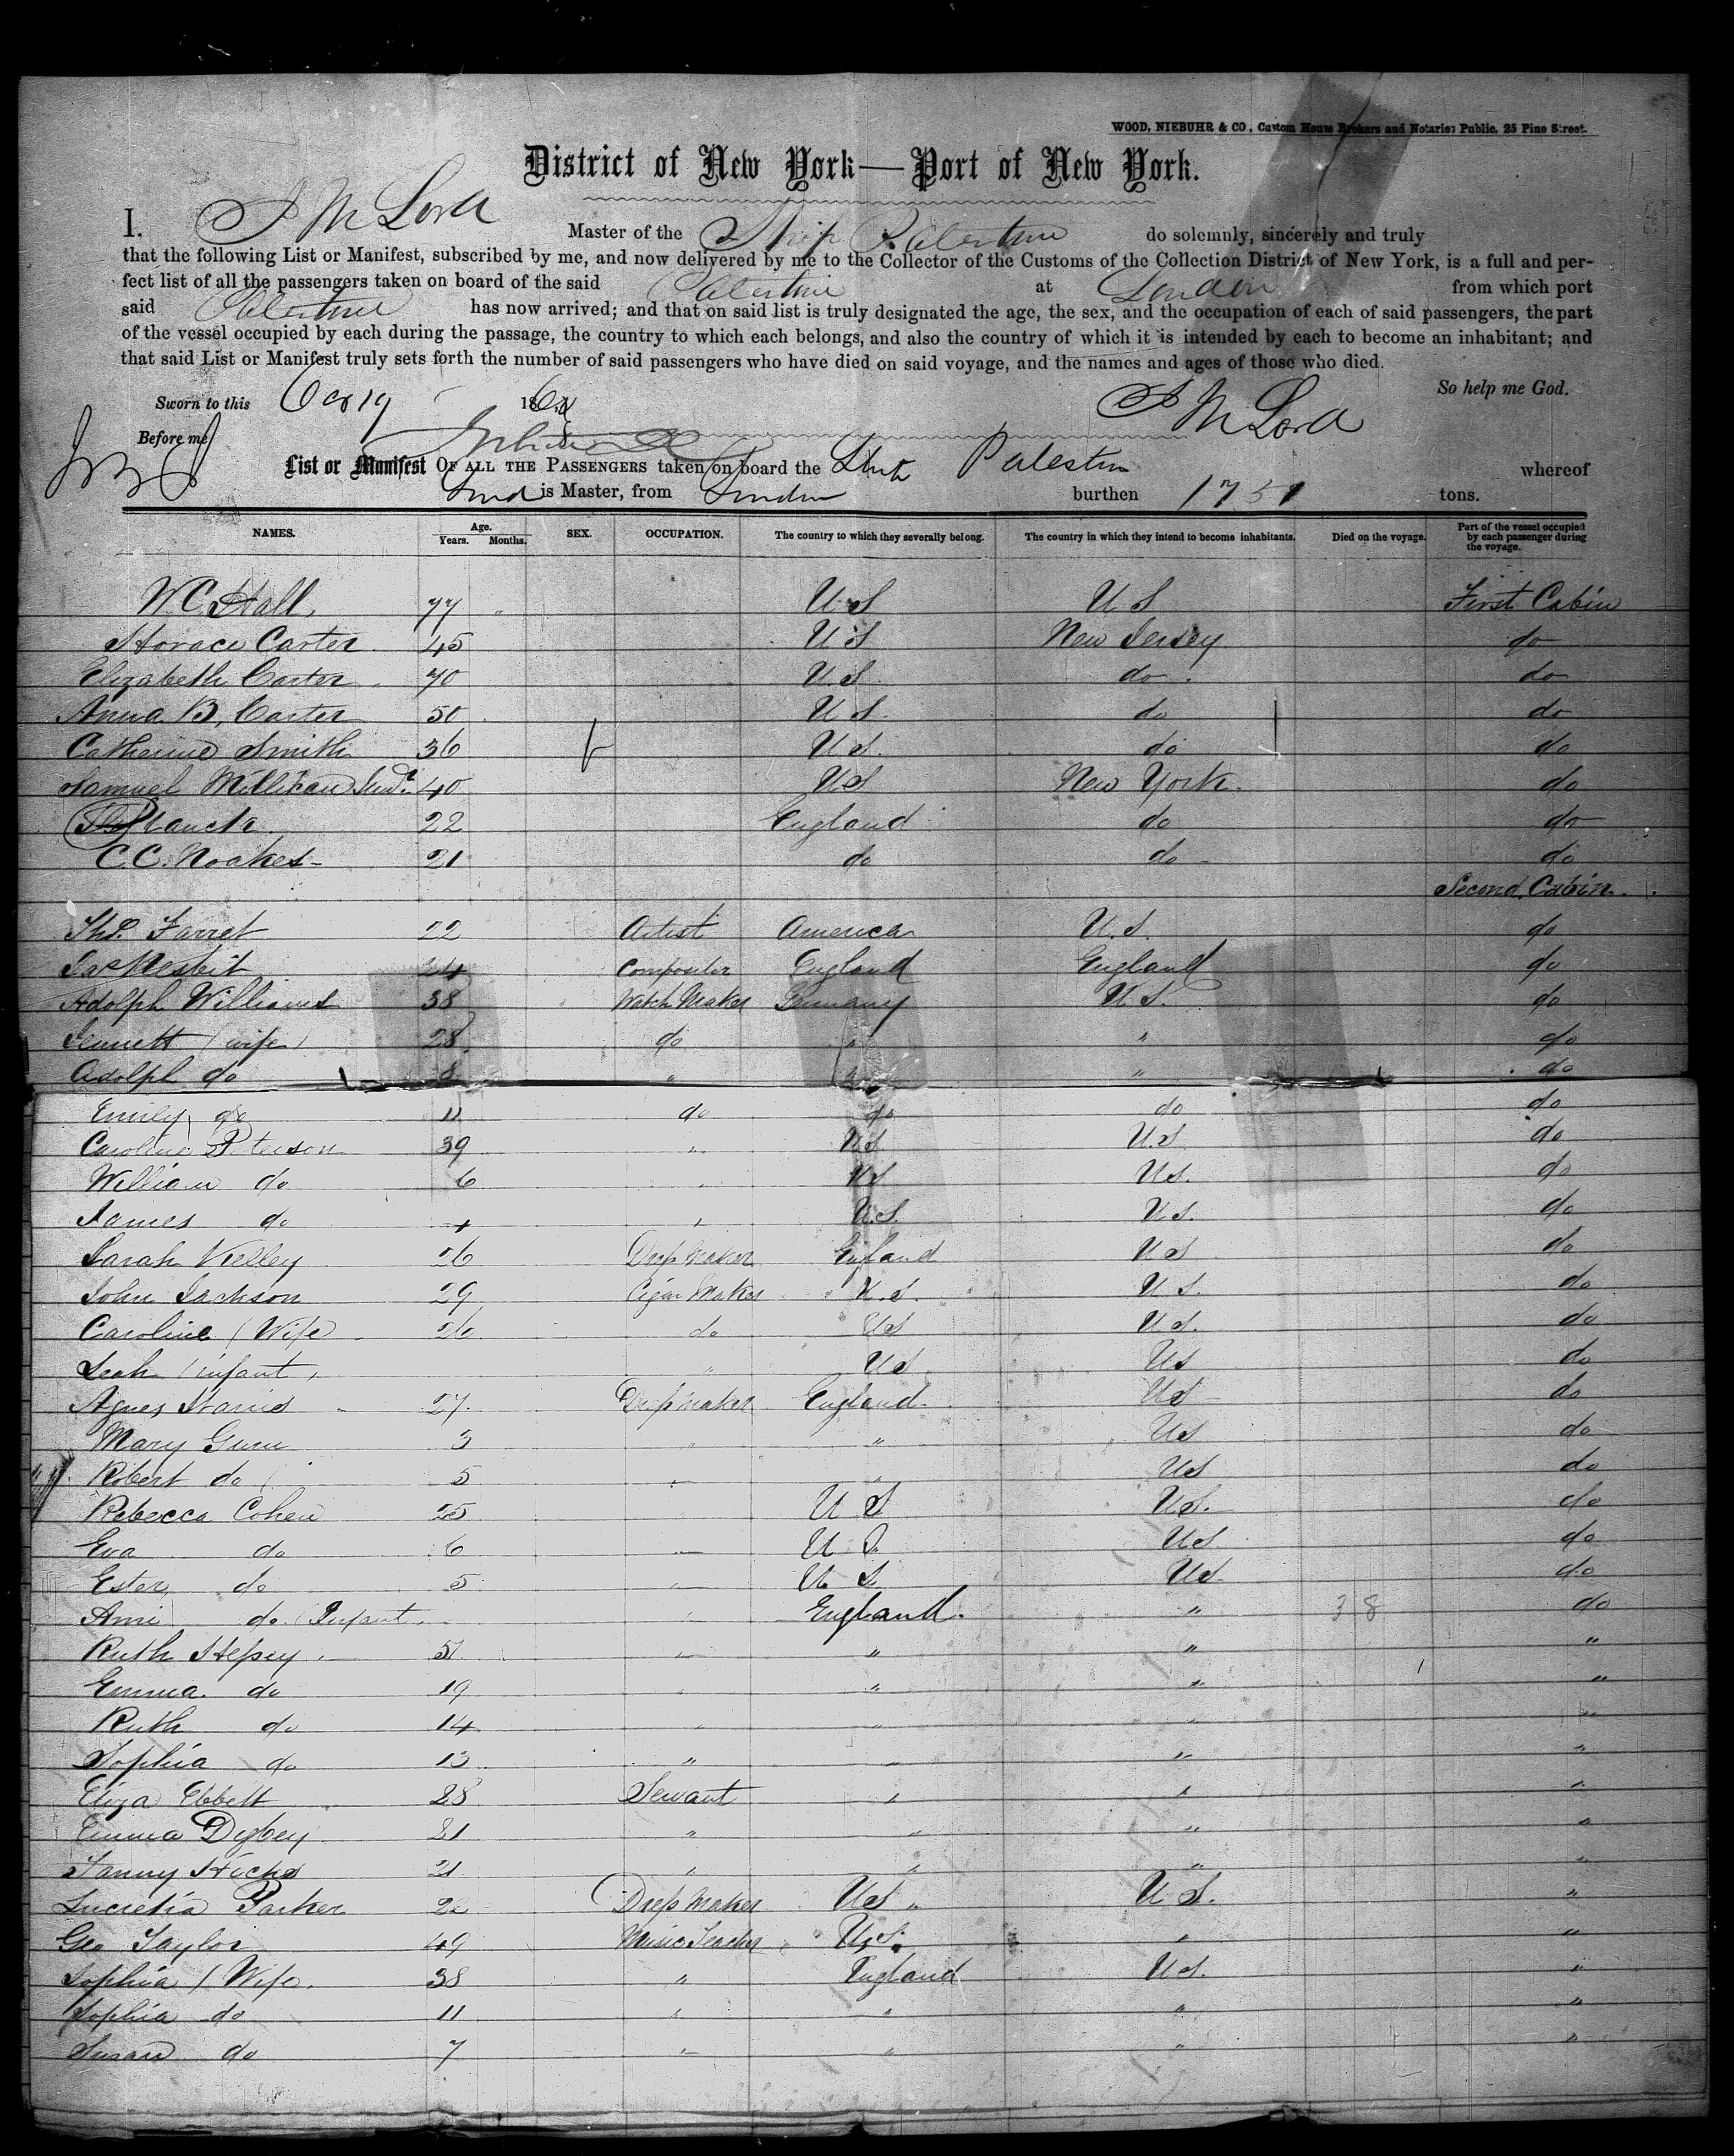 WOOD, NIEBUHR & CO., Custom House Brokers and Notaries Public, 25 Pine Street.
District of New York—Port of New York.
I. M Lord Master of the Ship Palestine do solemnly, sincerely and truly
that the following List or Manifest, subscribed by me, and now delivered by me to the Collector of the Customs of the Collection District of New York, is a full and per-
fect list of all the passengers taken on board of the said Palestine at London from which port
said Palestine has now arrived; and that on said list is truly designated the age, the sex, and the occupation of each of said passengers, the part
of the vessel occupied by each during the passage, the country to which each belongs, and also the country of which it is intended by each to become an inhabitant; and
that said List or Manifest truly sets forth the number of said passengers who have died on said voyage, and the names and ages of those who died.
So help me God.
Sworn to this Oct 19 186
M Lord
Before me
List or Manifest OF ALL THE PASSENGERS taken on board the Palestine whereof
Lord is Master, from London burthen 1751 tons.
NAMES. Age. Years. Months. SEX. OCCUPATION. The country to which they severally belong. The country in which they intend to become inhabitants. Died on the voyage. Part of the vessel occupied by each passenger during the voyage.
W.C. Hall 77 " U.S U S First Cabin
Horace Carter 45 U S New Jersey do
Elizabeth Carter 70 U.S. do do
Anna B. Carter 50 U S. do do
Catherine Smith 36 U S. do do
Samuel Millikan 40 US New York. do
22 England do do
C.C. Noakes 21 do do do
Second Cabin
Thos. Farret 22 Artist America U.S. do
Nesbit 24 Compositor England England do
Adolph Williams 38 Watch Maker Germany U S. do
Jennett (wife) 28 do " " do
Adolph do 8 " " " do
Emily do 11 do do do do
Caroline Peterson 39 " U.S U.S do
William do 6 " U S U.S. do
James do 4 " U.S. U.S. do
Sarah Kelley 26 Dress Maker England U S do
John Jackson 29 Cigar Maker U.S. U S. do
Caroline (Wife) 26 do U S U S. do
Leah (infant) " U S U S do
Agnes Harris 27 Dress maker England U S do
Mary Gunn 3 " " U S do
Robert do 5 " " U S do
Rebecca Cohen 25 U S U.S. do
Eva do 6 " U S. U S. do
Ester do 5 " U S. U S do
Ami do (Infant) " England. " 38 do
Ruth Hepsy 51 " " " "
Emma do 19 " " " "
Ruth do 14 " " " "
Sophia do 13 " " " "
Eliza Ebbett 28 Servant " " "
Emma Digbey 21 " " " "
Fanny Hicks 21 " " " "
Lucretia Parker 22 Dress Maker U S " U S. "
Geo Taylor 49 Music Teacher U.S. " "
Sophia (Wife) 38 " England U S. "
Sophia do 11 " " " "
Susan do 7 " " " "